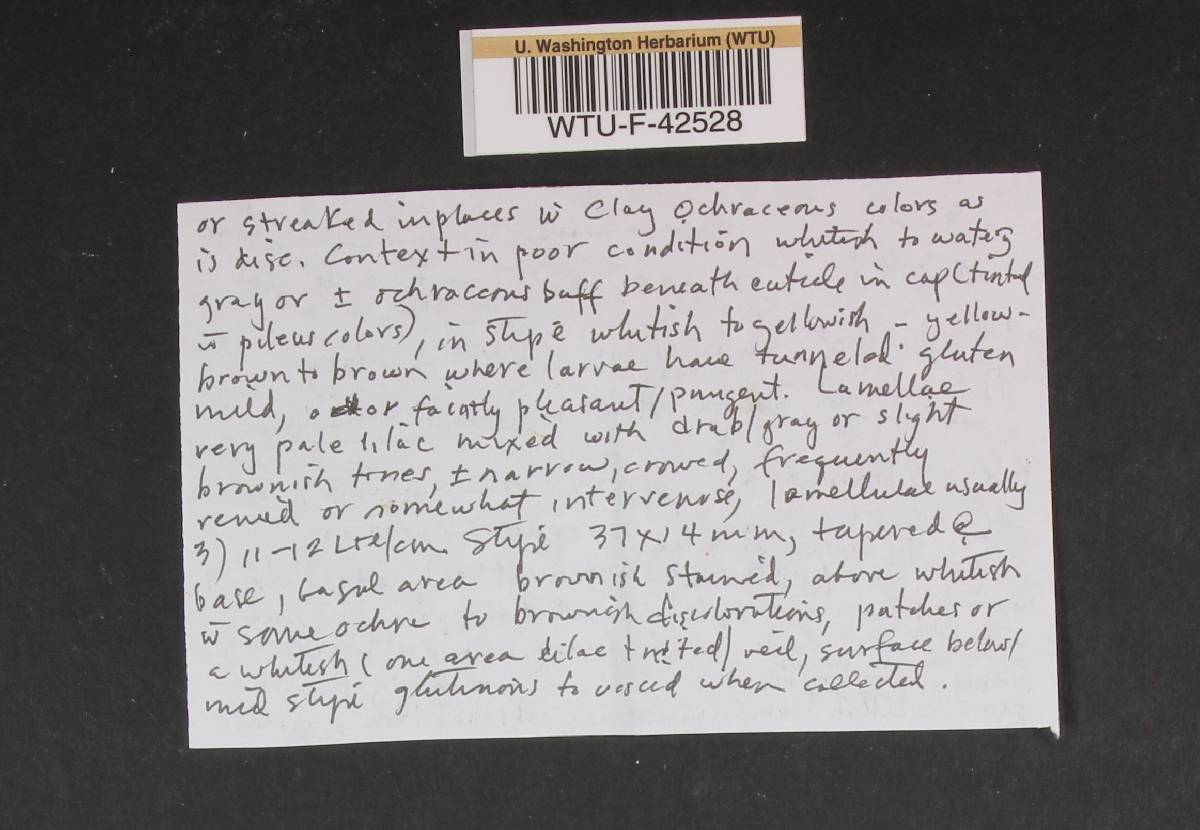 U. Washington Herbarium (WTU)
WTU-F-42528
or streaked in places w̄ Clay Ochraceous colors as
is disc. Context in poor condition whitish to watery
gray or ± ochraceous buff beneath cuticle in cap (tinted
w̄ pileus colors), in stipe whitish to yellowish - yellow-
brown to brown where larvae have tunneled. gluten
mild, odor faintly pleasant/pungent. Lamellae
very pale lilac mixed with drab/gray or slight
brownish tones, ± narrow, crowed, frequently
or somewhat intervenose, lamellulae usually
3) 11-12 L+l/cm. Stipe 37x14 mm, tapered @
base, basal area brownish stained, above whitish
w̄ some ochre to brownish discolorations, patches or
a whitish (one area lilac tinted) veil, surface below/
mid stipe glutinous to viscid when collected.